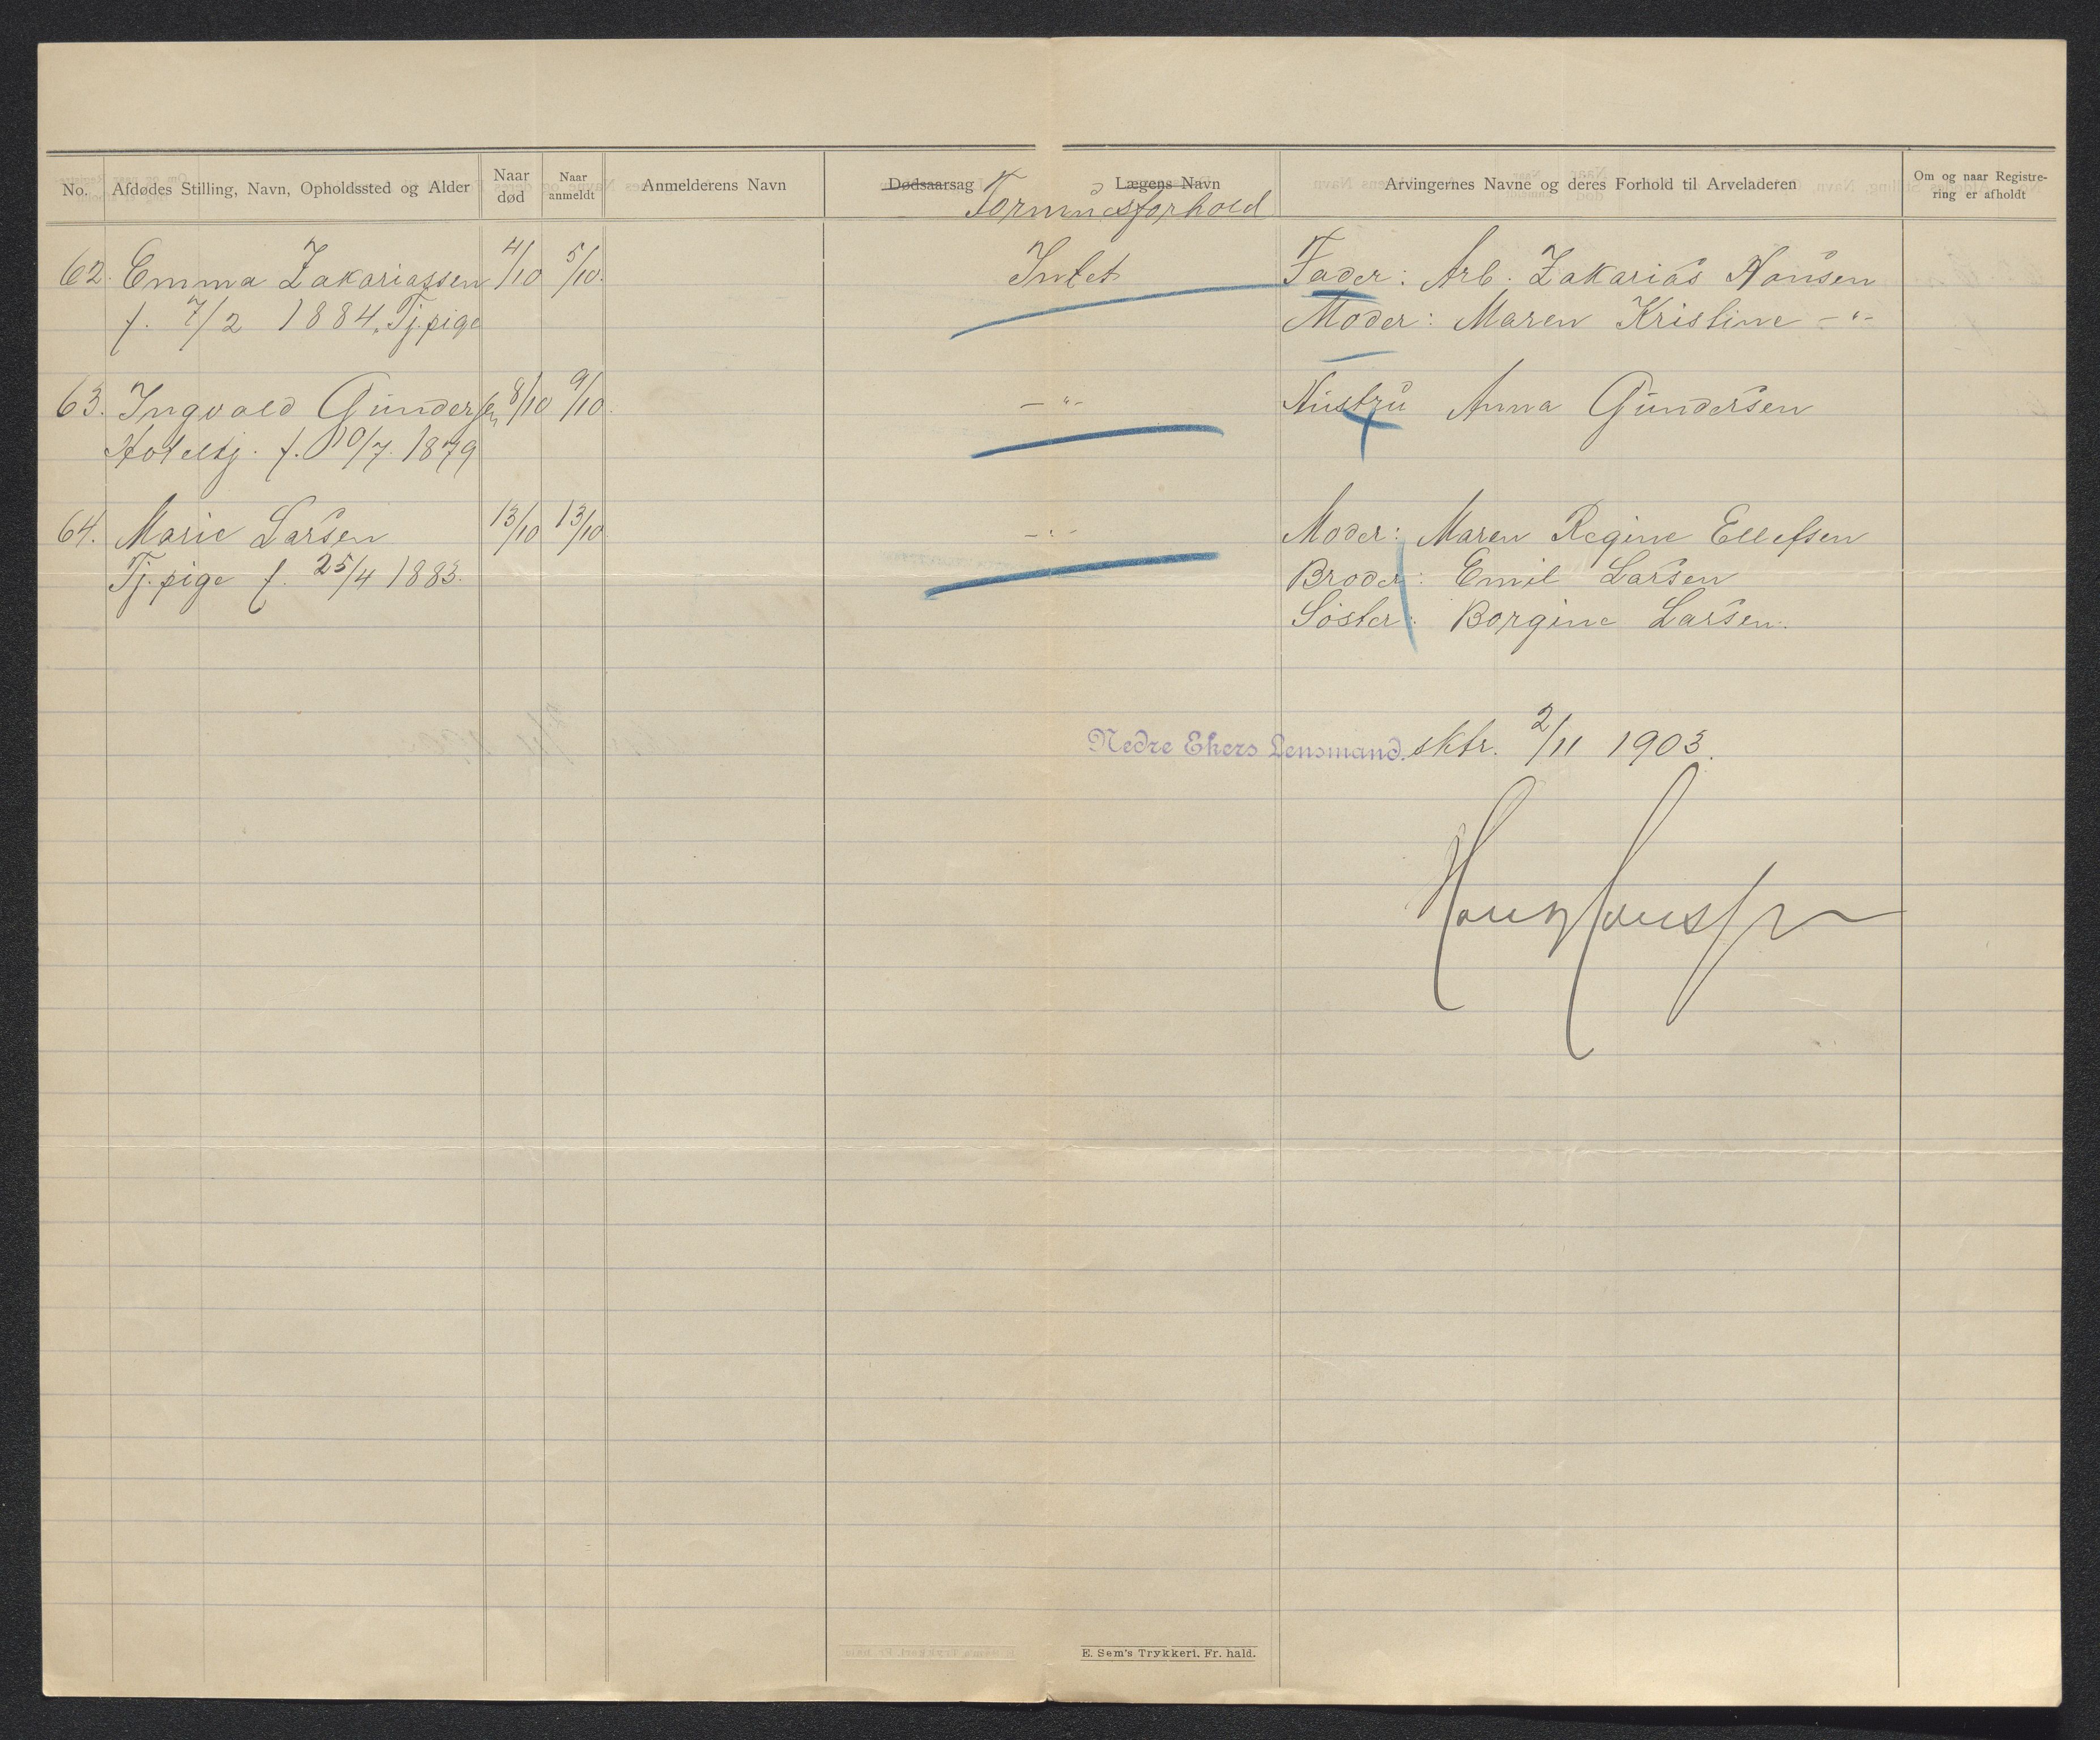 No. Afdødes Stilling, Navn, Opholdssted og Alder Naar død Naar anmeldt Anmelderens Navn Dødsaarsag Lægens Navn Arvingernes Navne og deres Forhold til Arveladeren Om og naar Registrering er afholdt
Formuesforhold
62. Emma Zakariassen 4/10 5/10. Intet Fader: Arb. Zakarias Hansen
f. 7/2 1884, Tj.pige Moder: Maren Kristine -"-
63. Ingvald Gundersen 8/10 9/10. -"- Hustru Anna Gundersen
Hotelbj. f. 10/7. 1879
64. Marie Larsen 13/10 13/10 -"- Moder: Maren Regine Ellefsen
Tj.pige f. 25/4 1883. Broder: Emil Larsen
Søster: Borgine Larsen.
Nedre Ekers Lensmand.sktr. 2/11 1903.
Hans Hansen
E. Sem's Trykkeri. Fr. hald.